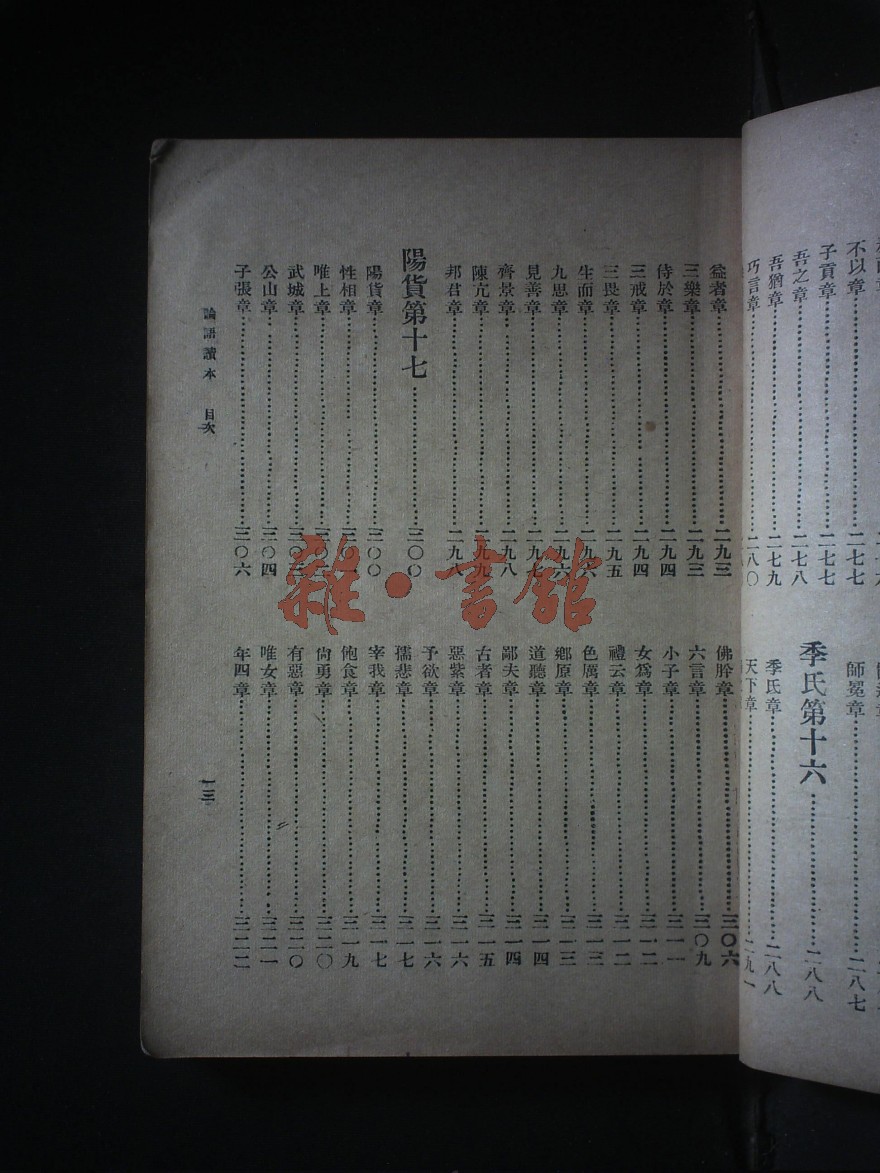 不以章……二七七
子貢章……二七七
吾之章……二七八
吾猶章……二七九
巧言章……二八〇
師冕章……二八七
季氏第十六……二八八
季氏章……二八八
天下章……二九一
益者章……二九三
三樂章……二九三
侍於章……二九四
三戒章……二九四
三畏章……二九五
生而章……二九六
九思章……二九六
見善章……二九七
齊景章……二九八
陳亢章……二九九
邦君章……二九八
陽貨第十七……三〇〇
陽貨章……三〇〇
性相章……三〇一
唯上章……三〇
武城章……三〇三
公山章……三〇四
子張章……三〇六
佛肸章……三〇六
六言章……三〇九
小子章……三一一
女爲章……三一二
禮云章……三一二
色厲章……三一三
鄉原章……三一三
道聽章……三一四
鄙夫章……三一四
古者章……三一五
惡紫章……三一六
予欲章……三一六
孺悲章……三一七
宰我章……三一七
飽食章……三一九
尙勇章……三二〇
有惡章……三二〇
唯女章……三二一
年四章……三二二
論語讀本 目次
一三
雜·書館